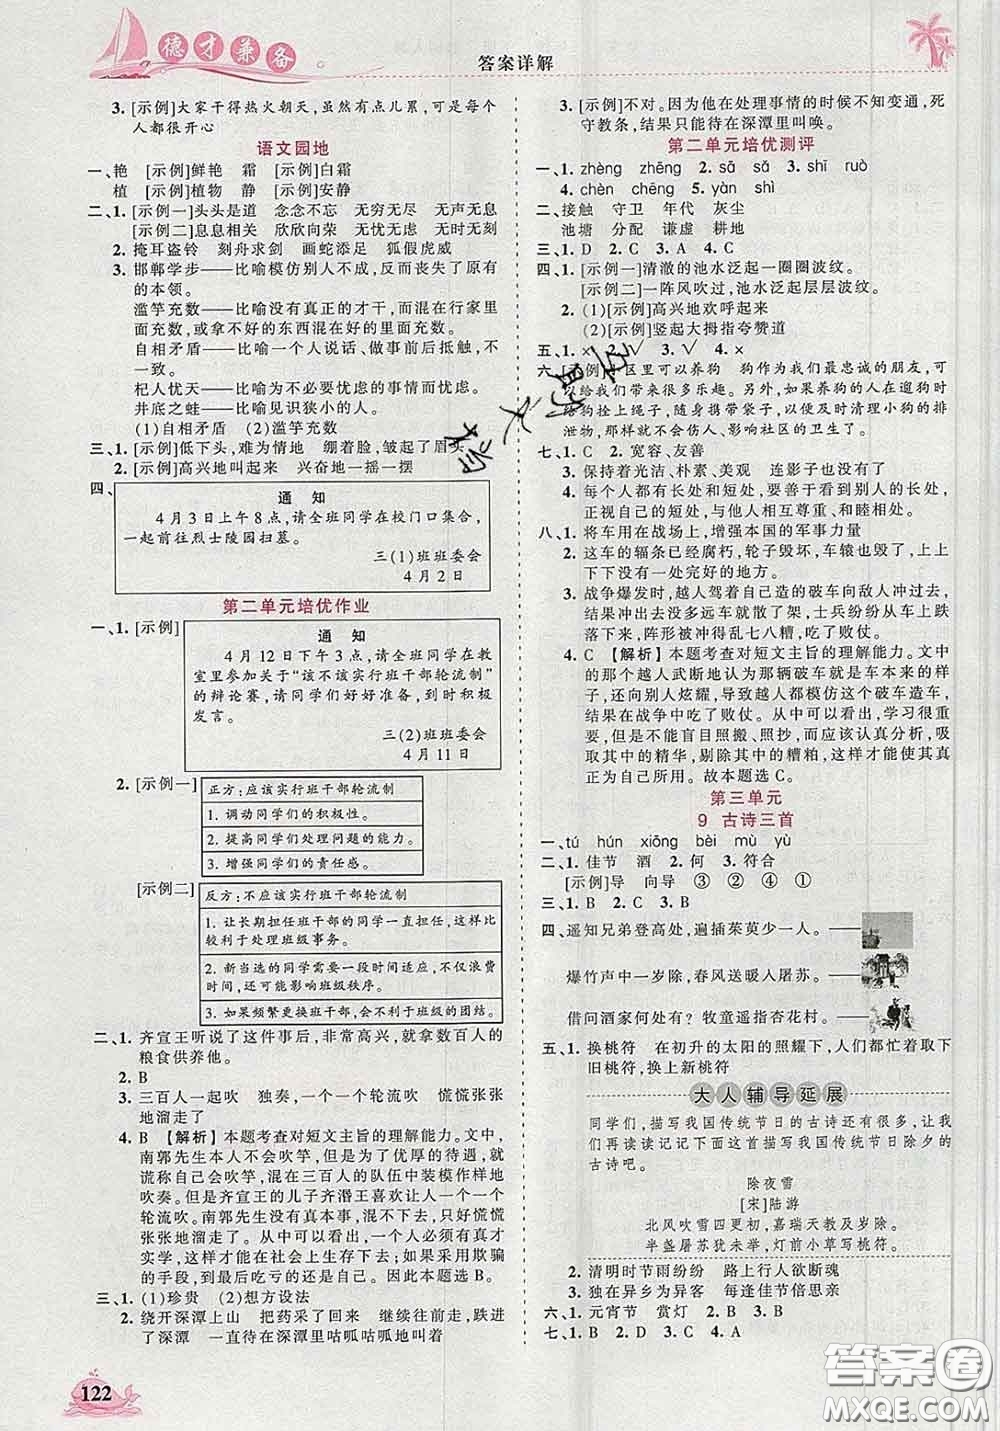 德才兼备
答案详解
3. [示例]大家干得热火朝天，虽然有点儿累，可是每个
人都很开心
语文园地
一、艳 [示例]鲜艳 霜 [示例]白霜
植 [示例]植物 静 [示例]安静
二、1. [示例一]头头是道 念念不忘 无穷无尽 无声无息
[示例二]息息相关 欣欣向荣 无忧无虑 无时无刻
2. 掩耳盗铃 刻舟求剑 画蛇添足 狐假虎威
3. 邯郸学步——比喻模仿别人不成，反而丧失了原有
的本领。
滥竽充数——比喻没有真正的才干，而混在行家里
面充数，或拿不好的东西混在好的里面充数。
自相矛盾——比喻一个人说话、做事前后抵触，不
一致。
杞人忧天——比喻为不必要忧虑的事情而忧虑。
井底之蛙——比喻见识狭小的人。
(1)自相矛盾 (2)滥竽充数
三、1. [示例]低下头，难为情地 绷着脸，皱起了眉头
2. [示例]高兴地叫起来 兴奋地一摇一摆
四、
通 知
4月3日上午8点，请全班同学在校门口集合，
一起前往烈士陵园扫墓。
三(1)班班委会
4月2日
第二单元培优作业
一、1. [示例]
通 知
4月12日下午3点，请全班同学在教
室里参加关于“该不该实行班干部轮流制”
的辩论赛，请同学们好好准备，到时积极
发言。
三(2)班班委会
4月11日
2. [示例一]
正方：应该实行班干部轮流制
1. 调动同学们的积极性。
2. 提高同学们处理问题的能力。
3. 增强同学们的责任感。
[示例二]
反方：不应该实行班干部轮流制
1. 让长期担任班干部的同学一直担任，这样
比较利于处理班级事务。
2. 新当选的同学需要一段时间适应，不仅浪费
时间，还可能影响班级秩序。
3. 如果频繁更换班干部，不利于班级的团结。
二、1. 齐宣王听说了这件事后，非常高兴，就拿数百人的
粮食供养他。
2. B
3. 三百人一起吹 独奏，一个一个轮流吹 慌慌张张
地溜走了
4. B 【解析】本题考查对短文主旨的理解能力。文中，
南郭先生本人不会吹竽，但是为了优厚的待遇，就
谎称自己会吹竽，在三百人的队伍中装模作样地
吹奏。但是齐宣王的儿子齐湣王喜欢让人一个一个
轮流吹。南郭先生没有真本事，所以只好慌慌
张张地溜走了。从中可以看出，一个人必须有真才
实学，这样才能在社会上生存下去；如果采用欺骗
的手段，到最后吃亏的还是自己。因此本题选B。
三、1. (1)珍贵 (2)想方设法
2. 绕开深潭上山 把药采了回来 继续往前走，跌进
了深潭 一直待在深潭里呱呱呱呱地叫着
122
3. [示例]不对。因为他在处理事情的时候不知变通，死
守教条，结果只能待在深潭里叫唤。
第二单元培优测评
一、1. zhèng zhēng 2. sā sǎ 3. shī ruò
4. chèn chēng 5. yàn shì
二、接触 守卫 年代 灰尘
池塘 分配 谦虚 耕地
三、1. D 2. C 3. A 4. C
四、1. [示例一]清澈的池水泛起一圈圈波纹。
[示例二]一阵风吹过，池水泛起层层波纹。
2. (1)[示例]高兴地欢呼起来
(2)[示例]竖起大拇指夸赞道
五、1. × 2. √ 3. √ 4. ×
六、[示例]小区里可以养狗 狗作为我们最忠诚的朋友，可
以给我们带来很多乐趣。另外，如果养狗的人在遛狗时
给狗拴上绳子，随身携带袋子，以便及时清理小狗的排
泄物，那样就不会伤人、影响社区的卫生了。
七、1. C 2. 宽容、友善
3. 保持着光洁、朴素、美观 连影子也没有
4. 每个人都有长处和短处，要善于看到别人的长处，
正视自己的短处，与他人相互尊重、和睦相处。
八、1. 将车用在战场上，增强本国的军事力量
2. 这车的辐条已经腐朽，轮子毁坏，车辕也断了，上上
下下没有一处完好的地方。
3. 战争爆发时，越人驾着自己造的破车向敌人冲过去，
没多远车就散了架，士兵纷纷从车上跌
落下来，阵形被冲得乱七八糟，吃了败仗。
4. C 【解析】本题考查对短文主旨的理解能力。文中
的越人武断地认为那辆破车就是车本来的样
子，还向别人炫耀，导致越人都模仿这个破车造车，
结果在战争中吃了败仗。从中可以看出，学习很重
要，但是不能盲目照搬、照抄，应该注意分析，吸
取其中的精华，剔除其中的糟粕，这样才能使其真正
为自己所用。故本题选C。
第三单元
9 古诗三首
一、tú hún xiōng bèi mù yù
二、1. 佳节 酒 2. 何 3. 符合
[示例]导 向导 ③ ② ④ ①
三、1. B 2. C 3. B
四、遥知兄弟登高处，遍插茱萸少一人。
爆竹声中一岁除，春风送暖入屠苏。
借问酒家何处有？牧童遥指杏花村。
五、1. 换桃符 在初升的太阳的照耀下，人们都忙着取下
旧桃符，换上新桃符
大人辅导延展
同学们，描写我国传统节日的古诗还有很多，让我
们再读读记记下面这首描写我国传统节日除夕的
古诗吧。
除夜雪
[宋]陆游
北风吹雪四更初，嘉瑞天教及岁除。
半盏屠苏犹未举，灯前小草写桃符。
2. 清明时节雨纷纷 路上行人欲断魂
3. 独在异乡为异客 每逢佳节倍思亲
六、1. 元宵节 赏灯 2. B 3. C
七、1. B 2. C 3. A 4. B
答案卷
MXQE.COM